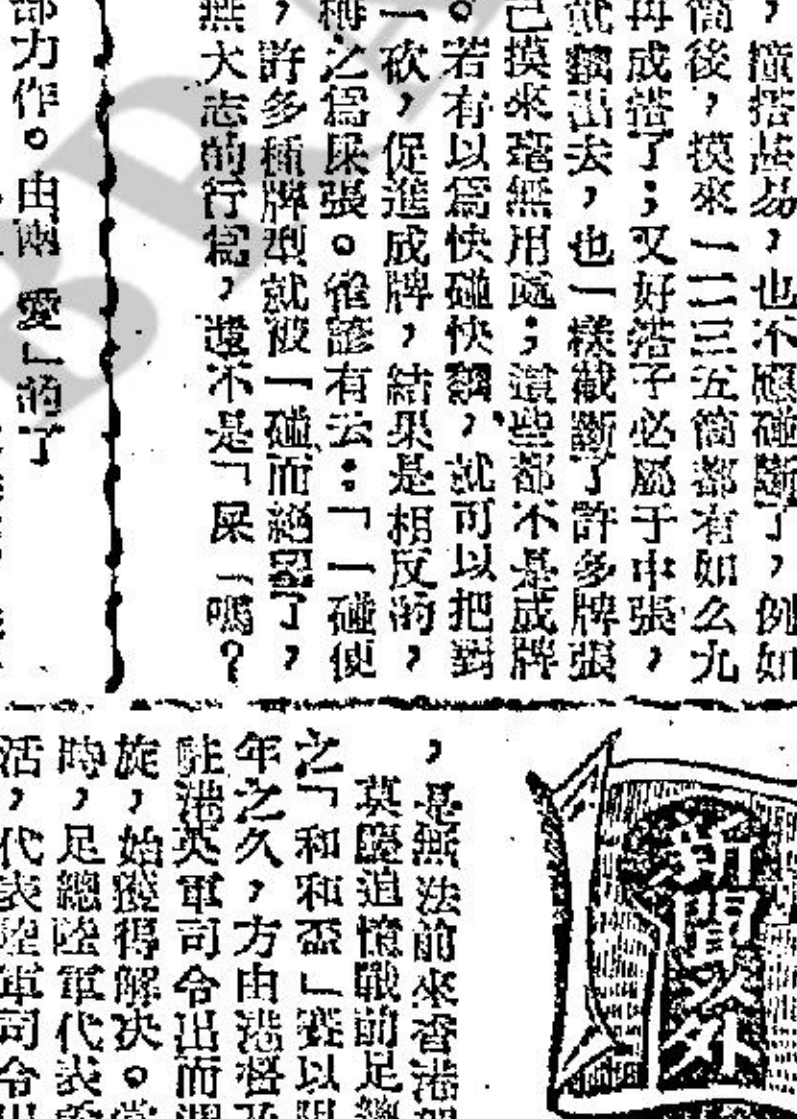 ，撞搭甚易，也不應碰斷了，例如
筒後，摸來一二三五筒都有如么九
再成搭了；又好搭子必屬于中張，
就翻出去，也一樣截斷了許多牌張
己摸來毫無用處；這些都不是成牌
。若有以爲快碰快翻，就可以把對
一砍，促進成牌，結果是相反的，
稱之爲屎張。俗諺有云：「一碰便
，許多種牌型就被一碰而絕望了，
無大志的行爲，還不是「屎「嗎？
部力作。由兩 愛」的了
新聞外
，是無法前來香港
莫慶追憶戰前足總
之「和和盃」賽以
年之久，方由港督
駐港英軍司令出而
旋，始獲得解決。當
時，足總陸軍代表
活，代表陸軍司令出